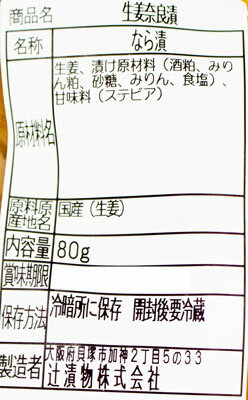 商品名 生姜奈良漬
名称 なら漬
原材料名 生姜、漬け原材料（酒粕、みり
ん粕、砂糖、みりん、食塩）、
甘味料（ステビア）
原料原産地名 国産（生姜）
内容量 80g
賞味期限
保存方法 冷暗所に保存 開封後要冷蔵
製造者 大阪府貝塚市加神2丁目5の33
辻漬物株式会社